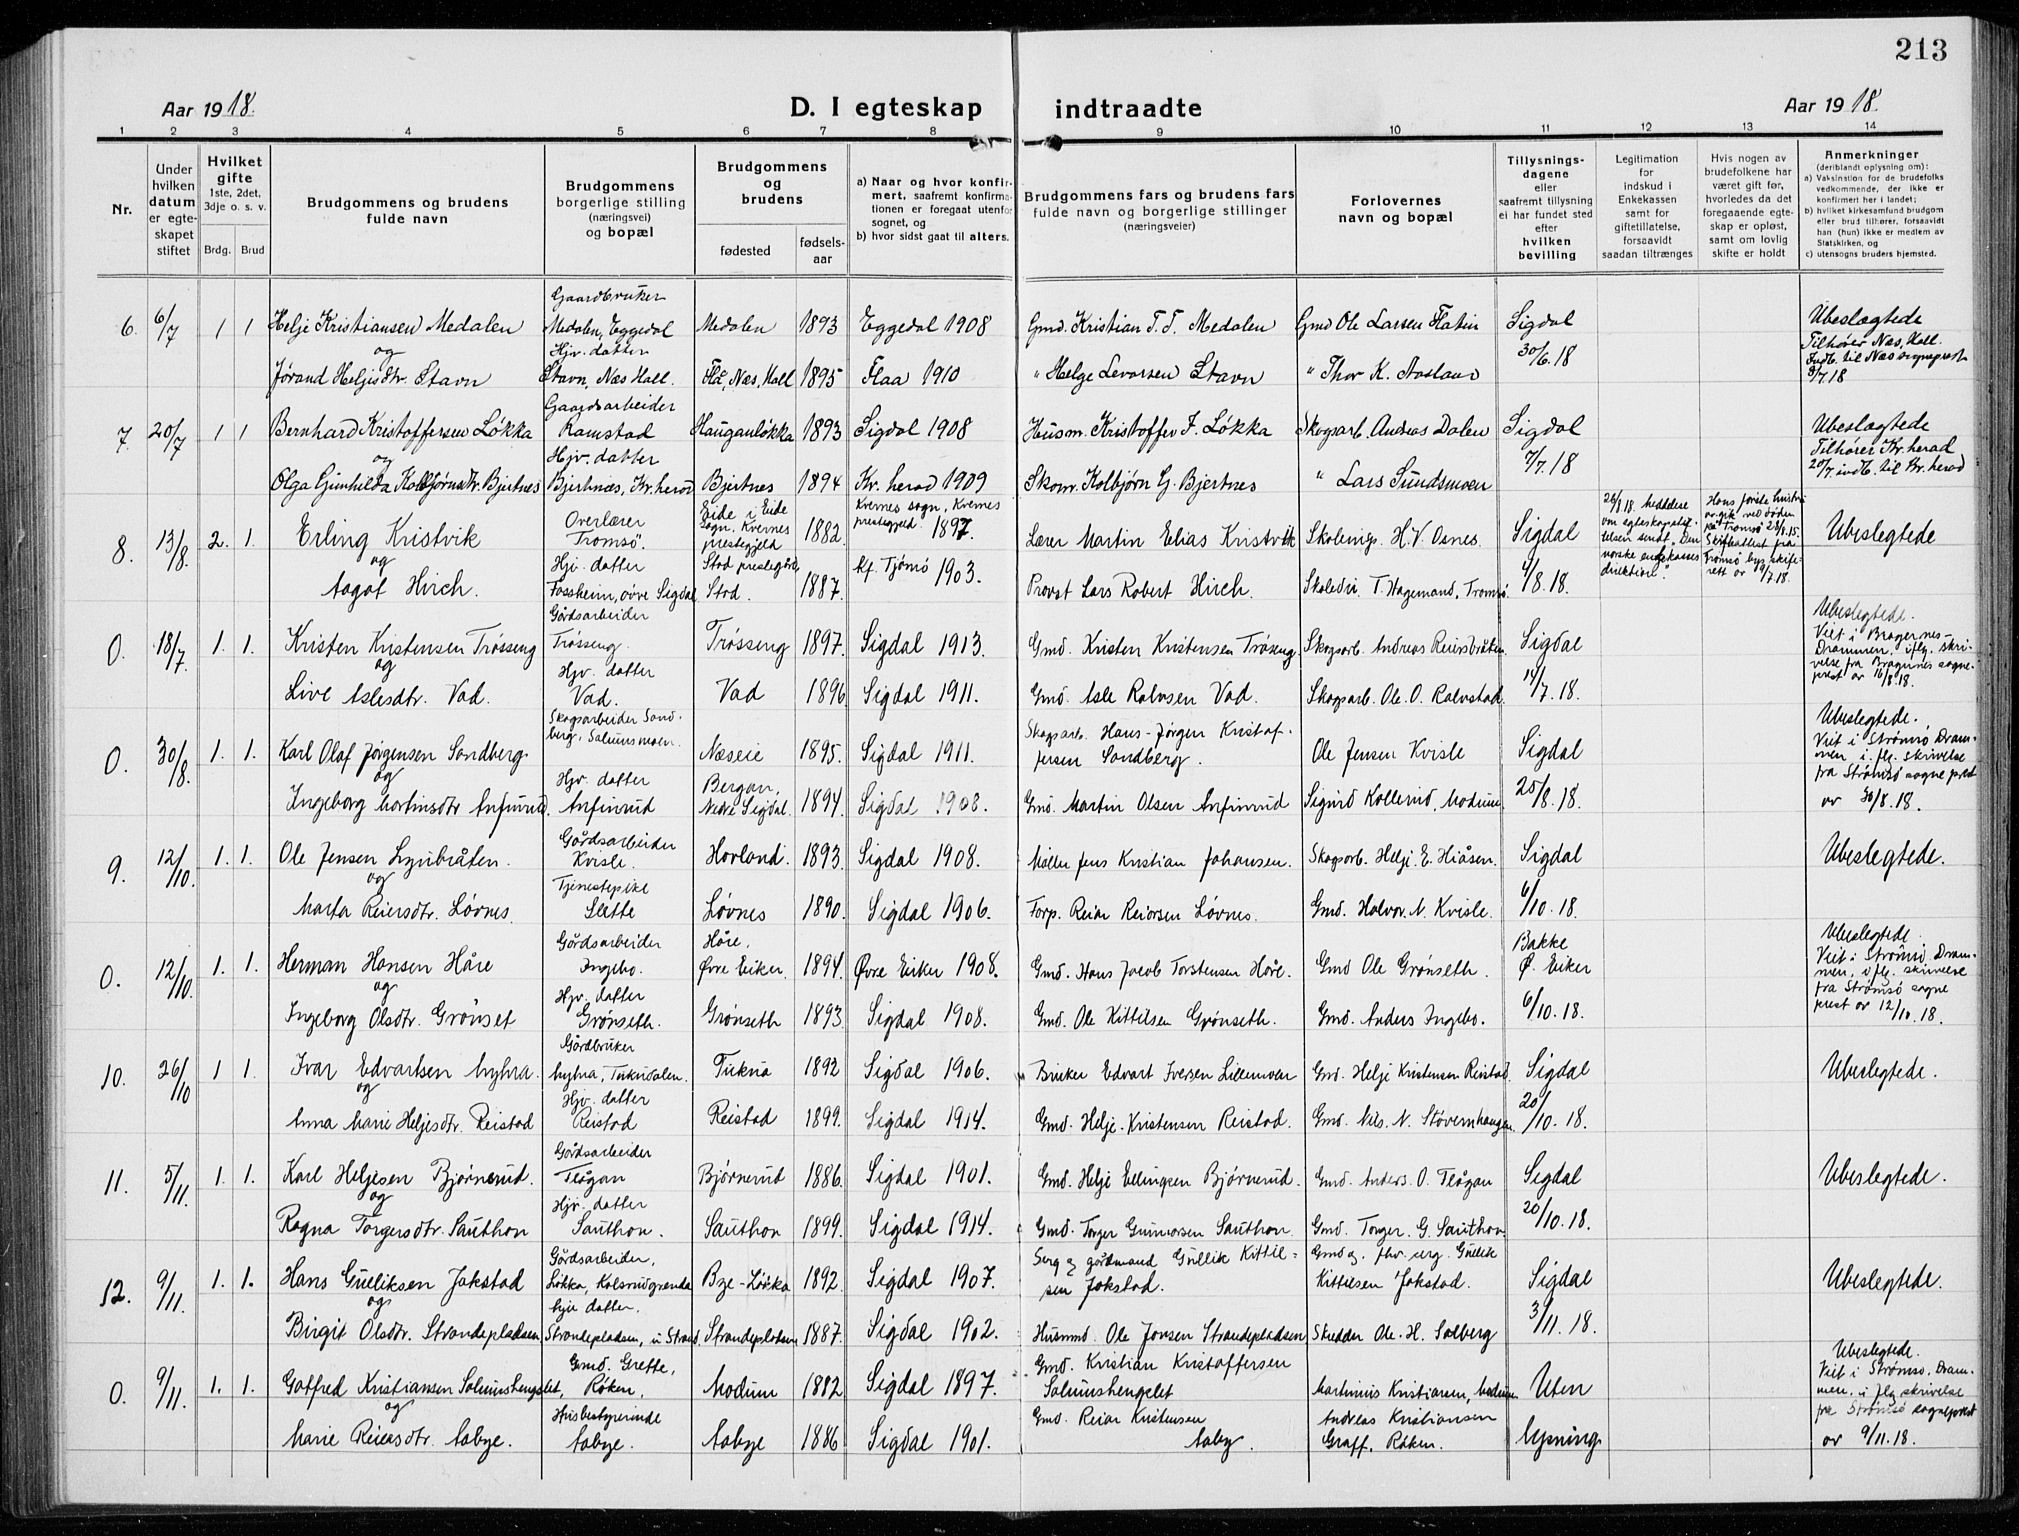 213
Aar 1918.
D. I egteskap indtraadte
Aar 1918.
1 2 3 4 5 6 7 8 9 10 11 12 13 14
Nr.
Under hvilken datum er egteskapet stiftet
Hvilket gifte
1ste, 2det, 3dje o. s. v.
Brdg. Brud
Brudgommens og brudens fulde navn
Brudgommens borgerlige stilling (næringsvei) og bopæl
Brudgommens og brudens
fødested
fødselsaar
a) Naar og hvor konfirmert, saafremt konfirmationen er foregaat utenfor sognet, og
b) hvor sidst gaat til alters.
Brudgommens fars og brudens fars fulde navn og borgerlige stillinger (næringsveier)
Forlovernes navn og bopæl
Tillysningsdagene eller saafremt tillysning ei har fundet sted efter hvilken bevilling
Legitimation for indskud i Enkekassen samt for giftetillatelse, forsaavidt saadan tiltrænges
Hvis nogen av brudefolkene har været gift før, hvorledes da det foregaaende egteskap er opløst, samt om lovlig skifte er holdt
Anmerkninger
(deriblandt oplysning om):
a) Vaksination for de brudefolks vedkommende, der ikke er konfirmert her i landet;
b) hvilket kirkesamfund brudgom eller brud tilhører, forsaavidt han (hun) ikke er medlem av Statskirken, og
c) utensogns bruders hjemsted.
6. 6/7 1 1 Helje Kristiansen Medalen Gaardbruker Medalen, Eggedal Medalen 1893 Eggedal 1908 Gmd. Kristian T. T. Medalen Gmd Ole Larsen Flatin Sigdal Ubeslægtede
og
Jørand Heljesdtr. Stavn Hjv. datter Stavn, Næs Hall. Flå, Næs, Hall 1895 Flaa 1910 " Helge Levorsen Stavn " Thor K. Aaslaad 30/6.18 Tilhører Næs, Hall. Indb. til Næs sogneprest 9/7.18
7. 20/7 1 1 Bernhard Kristoffersen Løkka Gaardsarbeider Ramstad Hauganløkka 1893 Sigdal 1908 Husm. Kristoffer F. Løkka Skogsarb. Andreas Dalen Sigdal Ubeslægtede
og
Olga Gunhilda Kolbjørnsdtr. Bjertnes Hjv. datter Bjertnæs, Kr. herad Bjertnes 1894 Kr. herad 1909 Skom. Kolbjørn G. Bjertnes " Lars Sundsmoen 7/7.18 Tilhører Kr. herad 20/7 indb. til Kr. herad
8. 13/8. 2. 1. Erling Kristvik Overlærer Tromsø. Eide i Eide sogn, Kvernes prestegjeld 1882 Kvernes sogn, Kvernes prestegjeld 1897. Lærer Martin Elias Kristvik Skoleinsp. H. V. Osnes. Sigdal Ubeslegtede
og
Aagot Hirch. Hjv. datter Fossheim, øvre Sigdal Stod prestegård, Stod. 1887. kf. Tjømø 1903. Provst Lars Robert Hirch. Skoledir. T. Hagemand, Tromsø. 4/8.18.
26/8.18. meddelelse om egteskapsstiftelsen sendt "Den norske enkekasses direktion".
Hans første hustru avgik ved døden på Tromsø 28/8.15. Skifteattest fra Tromsø by skifterett av 9/7.18.
0. 18/7 1. 1. Kristen Kristensen Trøsseng Gårdsarbeider Trøsseng. Trøsseng 1897. Sigdal 1913. Gmd. Kristen Kristensen Trøseng. Skogsarb. Andreas Reiersbråten. Sigdal Ubeslegtede.
og
Live Aslesdtr. Vad. Hjv. datter Vad. Vad 1896 Sigdal 1911. Gmd. Asle Ralvsen Vad. Skogsarb. Ole. O. Ralvstad. 14/7.18.
Viet i Bragernes- Drammen, iflg. skrivelse fra Bragernes sogneprest av 16/8.18.
0. 30/8. 1. 1. Karl Olaf Jørgensen Sandberg. Skogsarbeider Sandberg, Solumsmoen. Næseie 1895. Sigdal 1911. Skogsarb. Hans-Jørgen Kristoffersen Sandberg. Ole Jensen Kvisle Sigdal Ubeslegtede.
og
Ingeborg Martinsdtr Anfinrud. Hjv. datter Anfinrud Bergan, Nedre Sigdal. 1894. Sigdal 1908. Gmd. Martin Olsen Anfinrud Sigurd Kollerud, Modum. 25/8.18.
Viet i Strømsø Drammen i. flg. skrivelse fra Strømsø sogneprest av 30/8.18.
9. 12/10. 1. 1. Ole Jensen Lynbråten. Gårdsarbeider Kvisle. Horland. 1893. Sigdal 1908. Møller Jens Kristian Johansen. Skogsarb. Helje. E. Hiåsen. Sigdal Ubeslegtede.
og
Marta Reiersdtr. Løvnes. Tjenestepike Slette Løvnes 1890. Sigdal 1906. Forp. Reiar Reiersen Løvnes. Gmd. Halvor. N. Kvisle. 6/10.18.
0. 12/10. 1. 1. Herman Hansen Håre Gårdsarbeider Ingebo. Håre, Øvre Eiker. 1894. Øvre Eiker 1908. Gmd. Hans Jacob Torstensen Håre. Gmd Ole Grønseth. Bakke Ø. Eiker Ubeslegtede.
og
Ingeborg Olsdtr. Grønset Hjv. datter Grønseth. Grønseth 1893. Sigdal 1908. Gmd. Ole Kittilsen Grønseth. Gmd. Anders Ingebo. 6/10.18.
Viet i Strømsø. Drammen, i flg. skrivelse fra Strømsø sogneprest av 12/10.18.
10. 26/10 1 1. Ivar Edvartsen Myhra. Gårdbruker Myhra, Tukudalen. Tukuø 1892 Sigdal 1906. Bruker Edvart Iversen Lillemoen Gmd. Helje Kristensen Reistad. Sigdal Ubeslegtede.
og
Anna Marie Heljesdtr. Reistad Hjv. datter Reistad Reistad 1899. Sigdal 1914. Gmd. Helje. Kristensen Reistad. Gmd. Nils. N. Støvernhaugen. 20/10.18.
11. 5/11. 1. 1. Karl Heljesen Bjørnerud. Gårdsarbeider Flågan Bjørnerud 1886. Sigdal 1901. Gmd. Helje Ellingsen Bjørnerud. Gmd. Anders. O. Flågan Sigdal Ubeslegtede.
og
Ragna Torgersdtr. Sauthon Hjv. datter Sauthon. Sauthon 1899. Sigdal 1914. Gmd. Torger Gunnarsen Sauthon Gmd. Torger. G. Sauthon. 20/10.18.
12. 9/11. 1. 1. Hans Gulliksen Jokstad Gårdsarbeider, Løkka, Kolsrudgrenda Bye-Løkka 1892 Sigdal 1907. gårdmand Gullik Kittilsen Jokstad. Gmd Gullik Kittilsen Jokstad. Sigdal Ubeslegtede.
og
Birgit Olsdtr. Strandepladsen. Hjv datter. Strandepladsen, u Strand. Strandepladsen 1887. Sigdal 1902. Husmd. Ole Jonsen Strandepladsen Skredder Ole. H. Solberg 3/11.18.
0. 9/11. 1. 1. Gotfred Kristiansen Solumshengslet, Gmd. Grette, Røken, Modum 1882 Sigdal 1897. Gmd. Kristian Kristoffersen Solumshengslet Martinius Kristiansen, Modum Uten Ubeslegtede.
og
Marie Reiersdtr. Aabye. Husbestyrerinde Aabye. Aabye 1886 Sigdal 1901. Gmd. Reiar Kristensen Aaby. Andreas Kristiansen Graff. Røken. lysning
Viet i Strømsø. Drammen, i flg skrivelse fra Strømsø sogneprest av 9/11.18.